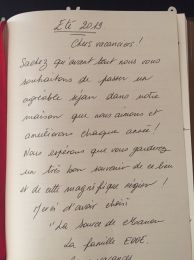 Eté 2019
Chers vacanciers !
Sachez qu'avant tout nous vous
souhaitons de passer un
agréable séjour dans notre
maison que nous aimons et
améliorons chaque année !
Nous espérons que vous garderez
un très bon souvenir de ce lieu
et de cette magnifique région !
Merci d'avoir choisi
"La Source de Manon
La famille